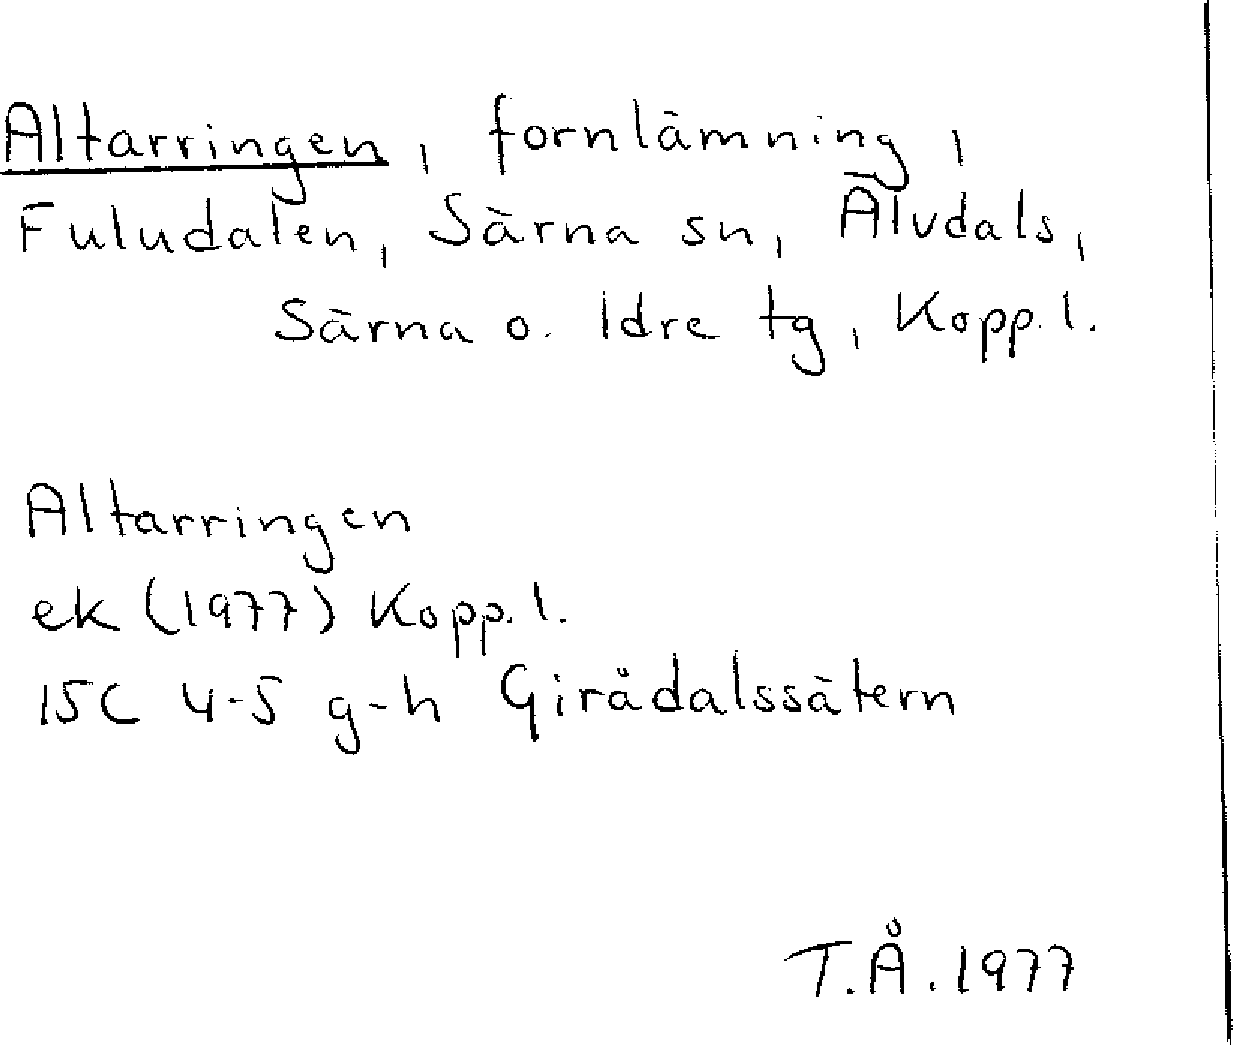 Altarringen, fornlämning,
Fuludalen, Särna sn, Älvdals,
Särna o. Idre tg, Kopp. l.
Altarringen
ek (1977) Kopp. l.
15C 4-5 g-h Girådalssätern
T.Å. 1977